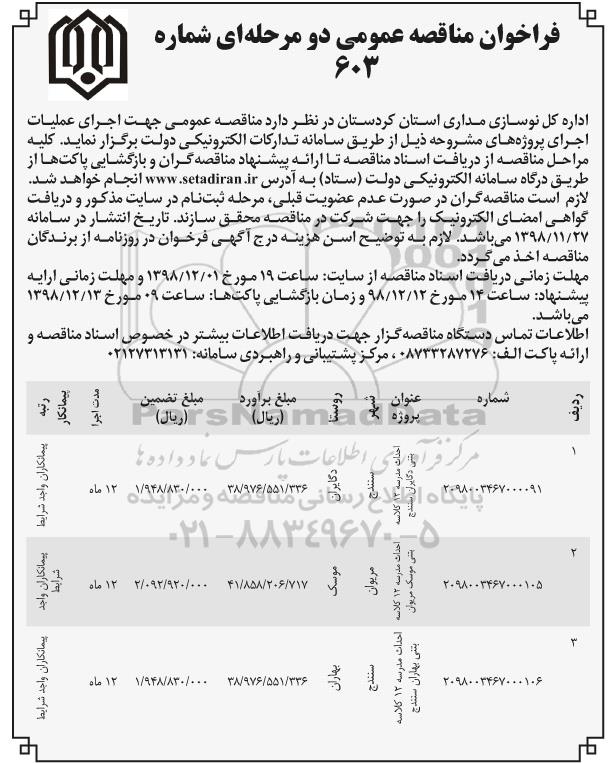 فراخوان مناقصه عمومی دو مرحله‌ای شماره
۶۰۳
اداره کل نوسازی مداری استان کردستان در نظر دارد مناقصه عمومی جهت اجرای عملیات
اجرای پروژه‌های مشروحه ذیل از طریق سامانه تدارکات الکترونیکی دولت برگزار نماید. کلیه
مراحل مناقصه از دریافت اسناد مناقصه تا ارائه پیشنهاد مناقصه‌گران و بازگشایی پاکت‌ها از
طریق درگاه سامانه الکترونیکی دولت (ستاد) به آدرس www.setadiran.ir انجام خواهد شد.
لازم است مناقصه‌گران در صورت عدم عضویت قبلی، مرحله ثبت‌نام در سایت مذکور و دریافت
گواهی امضای الکترونیک را جهت شرکت در مناقصه محقق سازند. تاریخ انتشار در سامانه
۱۳۹۸/۱۱/۲۷ می‌باشد. لازم به توضیح اسن هزینه درج آگهی فرخوان در روزنامه از برندگان
مناقصه اخذ می‌گردد.
مهلت زمانی دریافت اسناد مناقصه از سایت: ساعت ۱۹ مورخ ۱۳۹۸/۱۲/۰۱ و مهلت زمانی ارایه
پیشنهاد: ساعت ۱۴ مورخ ۹۸/۱۲/۱۲ و زمان بازگشایی پاکت‌ها: ساعت ۰۹ مورخ ۱۳۹۸/۱۲/۱۳
می‌باشد.
اطلاعات تماس دستگاه مناقصه‌گزار جهت دریافت اطلاعات بیشتر در خصوص اسناد مناقصه و
ارائه پاکت الف: ۰۸۷۳۳۲۸۷۲۷۶ ، مرکز پشتیبانی و راهبردی سامانه: ۰۲۱۲۷۳۱۳۱۳۱
ردیف شماره عنوان پروژه شهر روستا مبلغ برآورد (ریال) مبلغ تضمین (ریال) مدت اجرا رتبه پیمانکار
۱ ۲۰۹۸۰۰۳۴۶۷۰۰۰۰۹۱ احداث مدرسه ۱۲ کلاسه بتنی دگایران سنندج سنندج دگایران ۳۸/۹۷۶/۵۵۱/۳۳۶ ۱/۹۴۸/۸۳۰/۰۰۰ ۱۲ ماه پیمانکاران واجد شرایط
۲ ۲۰۹۸۰۰۳۴۶۷۰۰۰۱۰۵ احداث مدرسه ۱۲ کلاسه بتنی موسک مریوان مریوان موسک ۴۱/۸۵۸/۲۰۶/۷۱۷ ۲/۰۹۲/۹۲۰/۰۰۰ ۱۲ ماه پیمانکاران واجد شرایط
۳ ۲۰۹۸۰۰۳۴۶۷۰۰۰۱۰۶ احداث مدرسه ۱۲ کلاسه بتنی بهاران سنندج سنندج بهاران ۳۸/۹۷۶/۵۵۱/۳۳۶ ۱/۹۴۸/۸۳۰/۰۰۰ ۱۲ ماه پیمانکاران واجد شرایط
ParsNamadData
مرکز فرآوری اطلاعات پارس نماد داده ها
پایگاه اطلاع رسانی مناقصه و مزایده
۰۲۱-۸۸۳۴۹۶۷۰-۵